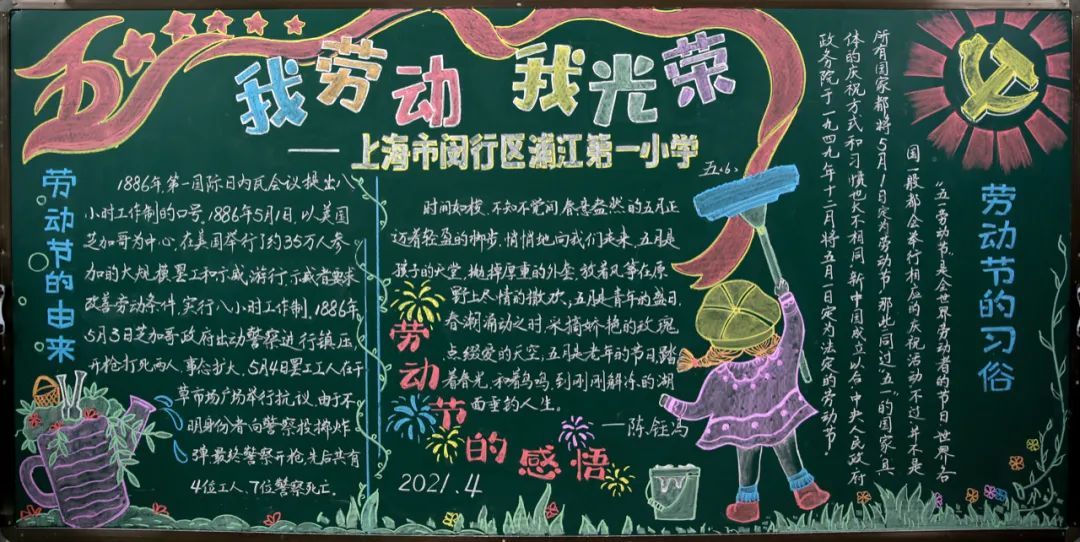 五一
我劳动 我光荣
——上海市闵行区浦江第一小学
五.6.
劳动节的由来
1886年,第一国际日内瓦会议提出八
小时工作制的口号,1886年5月1日,以美国
芝加哥为中心,在美国举行了约35万人参
加的大规模罢工和示威游行,示威者要求
改善劳动条件,实行八小时工作制,1886年
5月3日芝加哥政府出动警察进行镇压
开枪打死两人,事态扩大,5月4日罢工工人在干
草市场广场举行抗议,由于不
明身份者向警察投掷炸
弹,最终警察开枪,先后共有
4位工人、7位警察死亡.
劳动节的感悟
时间如梭,不知不觉间,春意盎然的五月正
迈着轻盈的脚步,悄悄地向我们走来,五月是
孩子的天堂,抛掉厚重的外套,放着风筝在原
野上尽情的撒欢,五月是青年的盛日,
春潮涌动之时,采摘娇艳的玫瑰
点缀爱的天空,五月是老年的节日,踏
着春光,和着鸟鸣,到刚刚解冻的湖
面垂钓人生。
——陈钰冯
2021.4
劳动节的习俗
“五一劳动节”是全世界劳动者的节日,世界上各
国一般都会举行相应的庆祝活动,不过,并不是
所有国家都将5月1日定为劳动节,那些同过“五一”的国家,具
体的庆祝方式和习惯也大不相同,新中国成立以后,中央人民政府
政务院于一九四九年十二月将五月一日定为法定的劳动节.